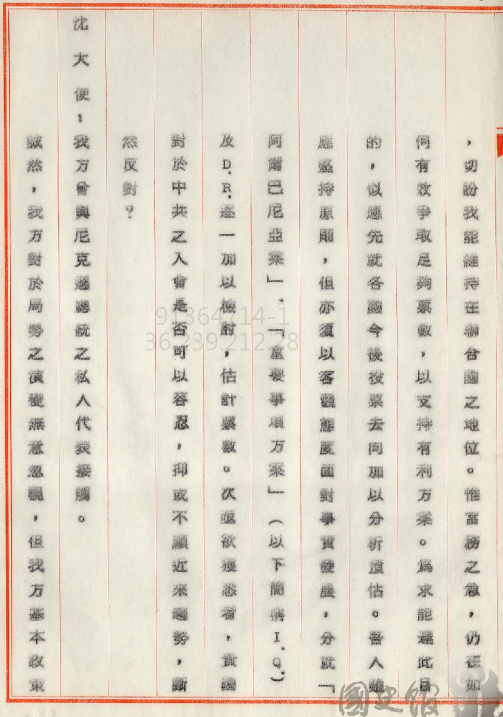 ，切盼我能維持在聯合國之地位。惟當務之急，仍在如
何有效爭取足夠票數，以支持有利方案。為求能達此目
的，似應先就各國今後投票去向加以分析預估。吾人雖
應堅持原則，但亦須以客觀態度面對事實發展，分就「
阿爾巴尼亞案」、「重要事項方案」（以下簡稱I.Q.）
及D.R.逐一加以檢討，估計票數。次區欲獲悉者，貴國
對於中共之入會是否可以容忍，抑或不顧近來趨勢，斷
然反對？
沈大使：我方曾與尼克遜總統之私人代表接觸。
誠然，我方對於局勢之演變無意忽視，但我方基本政策
91364714-1
36.239.212.28
國史館